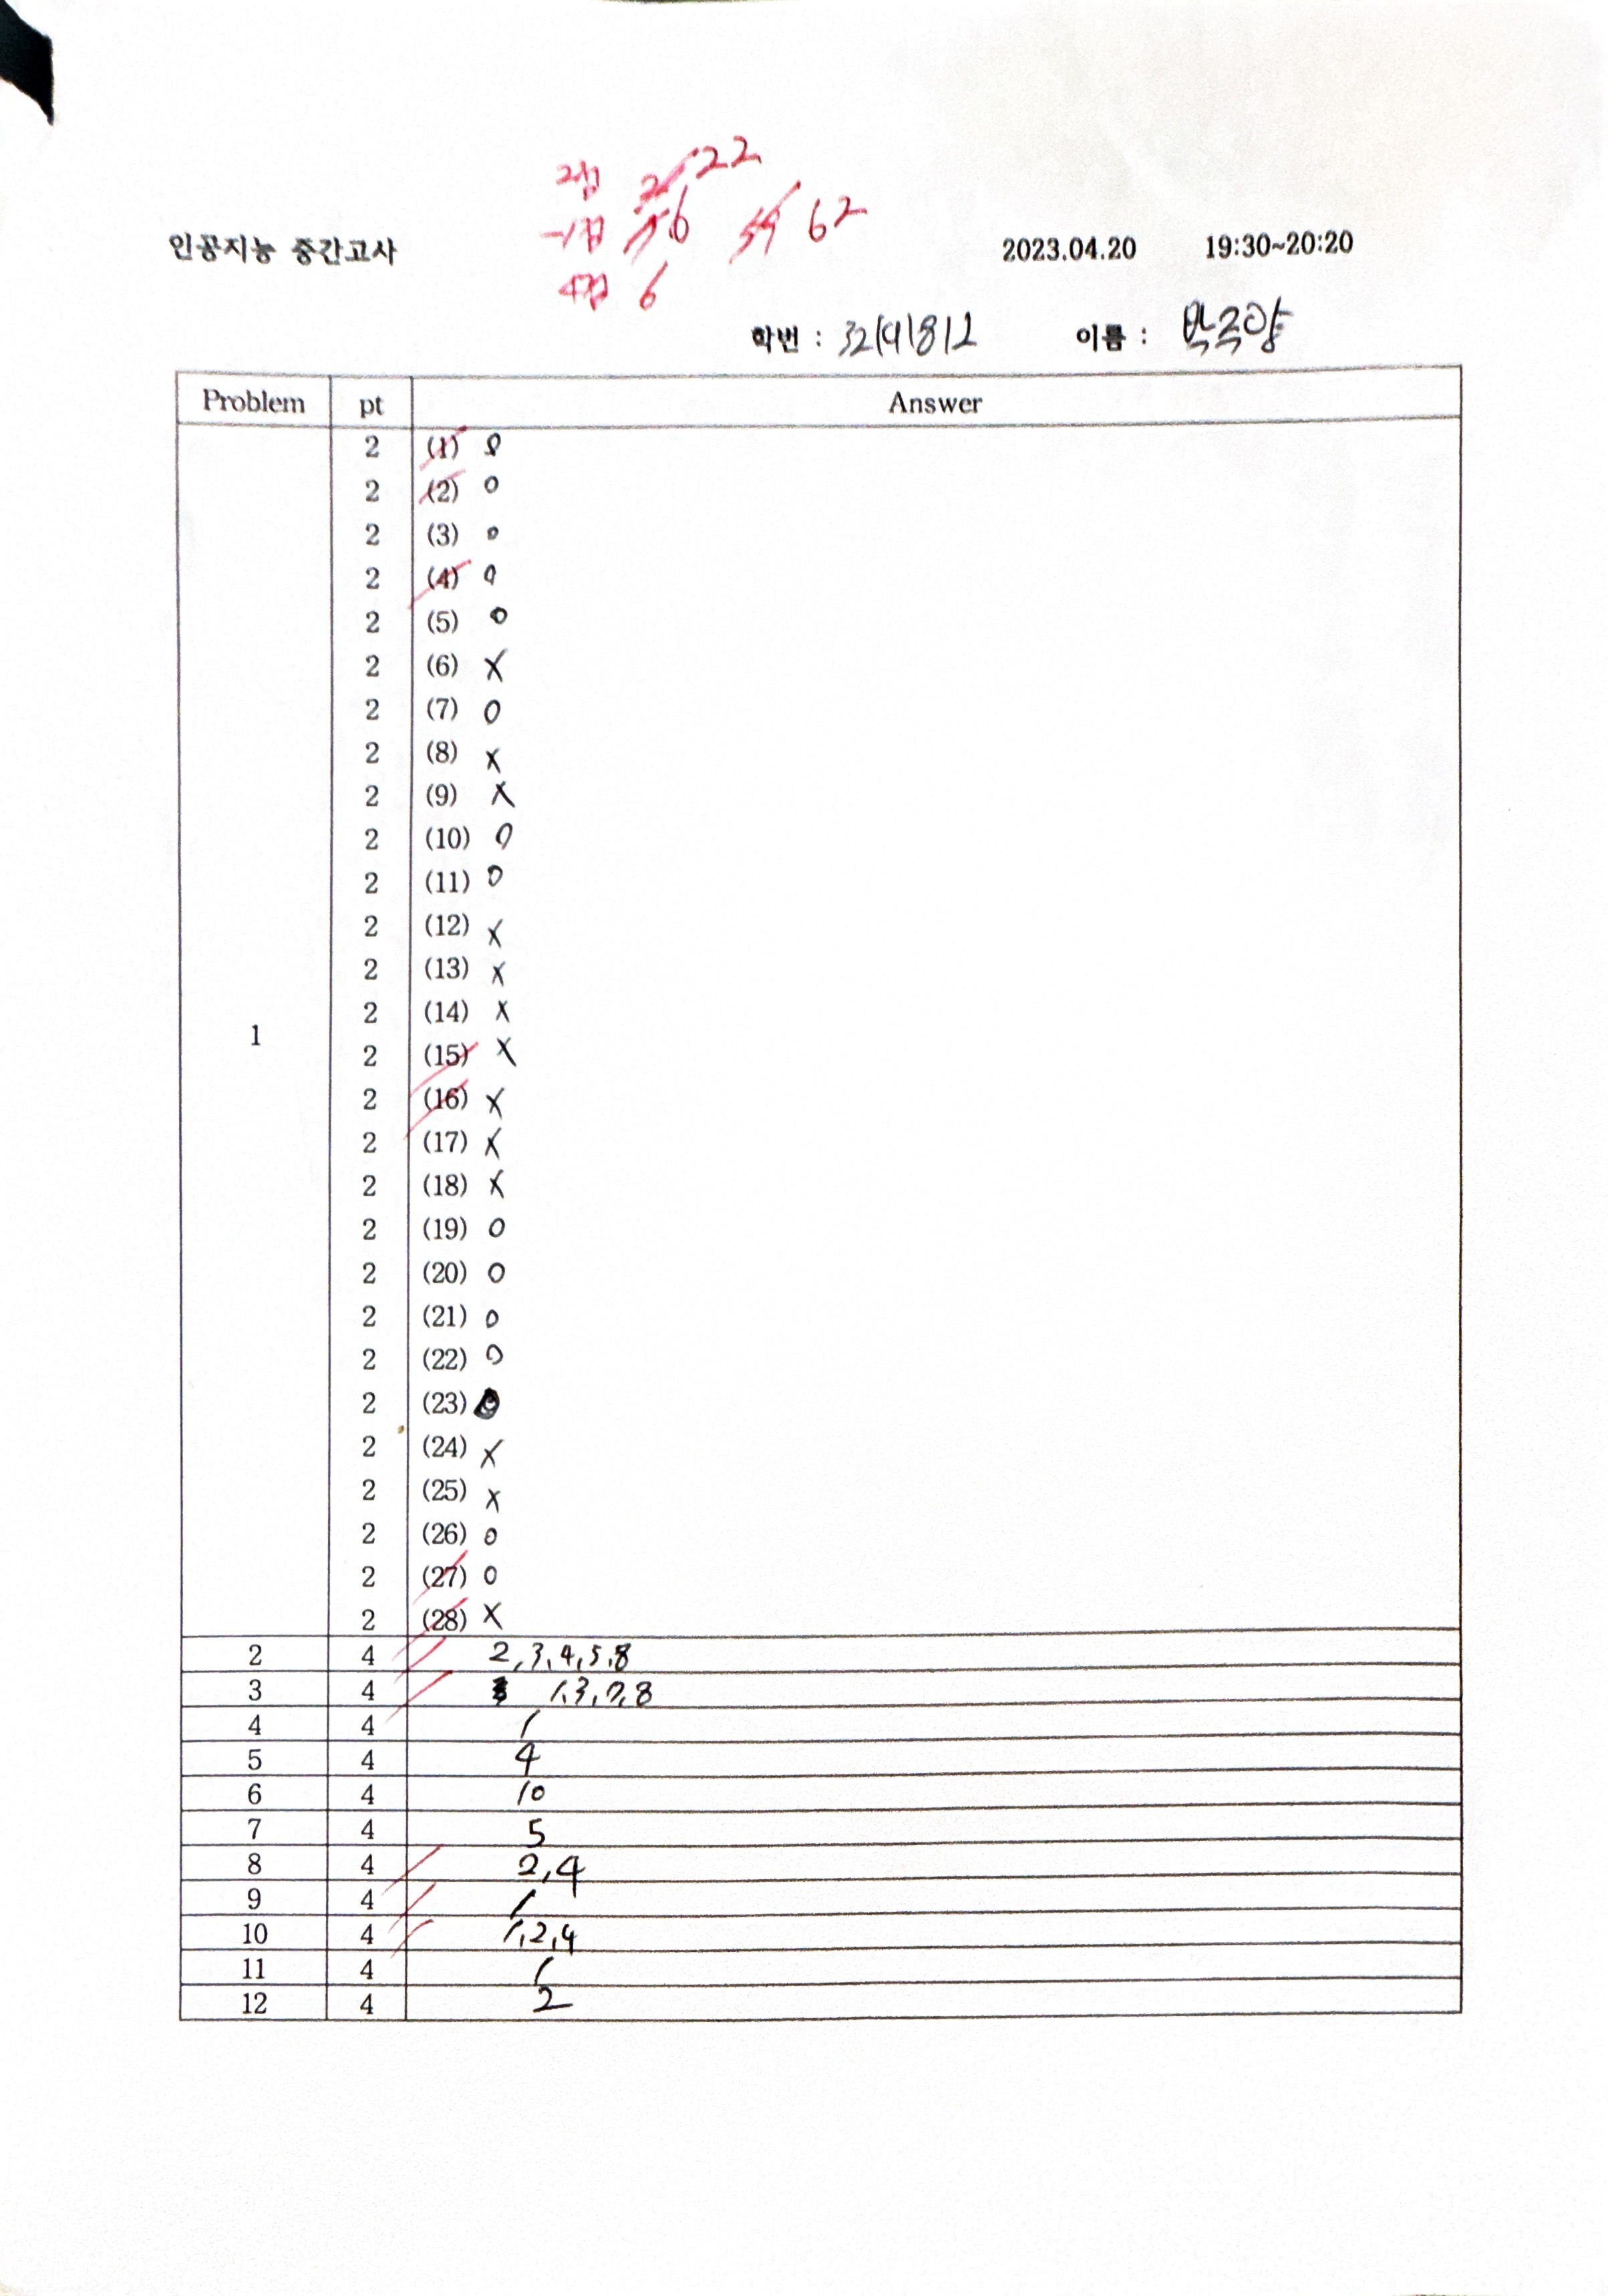 2점 22
-1점 6 59 62
4점 6
인공지능 중간고사 2023.04.20 19:30~20:20
학번 : 32141812 이름 :
Problem pt Answer
1
2 (1) O
2 (2) O
2 (3) O
2 (4) O
2 (5) O
2 (6) X
2 (7) O
2 (8) X
2 (9) X
2 (10) O
2 (11) O
2 (12) X
2 (13) X
2 (14) X
2 (15) X
2 (16) X
2 (17) X
2 (18) X
2 (19) O
2 (20) O
2 (21) O
2 (22) O
2 (23) O
2 (24) X
2 (25) X
2 (26) O
2 (27) O
2 (28) X
2 4 2,3,4,5,8
3 4 1,3,7,8
4 4 1
5 4 4
6 4 10
7 4 5
8 4 2,4
9 4 1
10 4 1,2,4
11 4 1
12 4 2